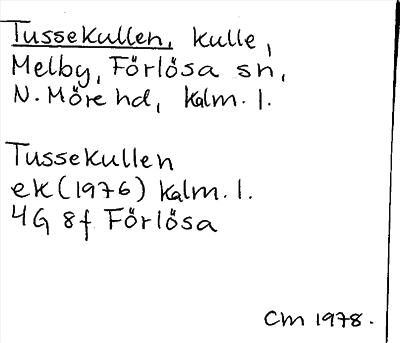 Tussekullen, kulle,
Melby, Förlösa sn,
N. Möre hd, Kalm. l.
Tussekullen
ek (1976) Kalm. l.
4G 8f Förlösa
CM 1978.